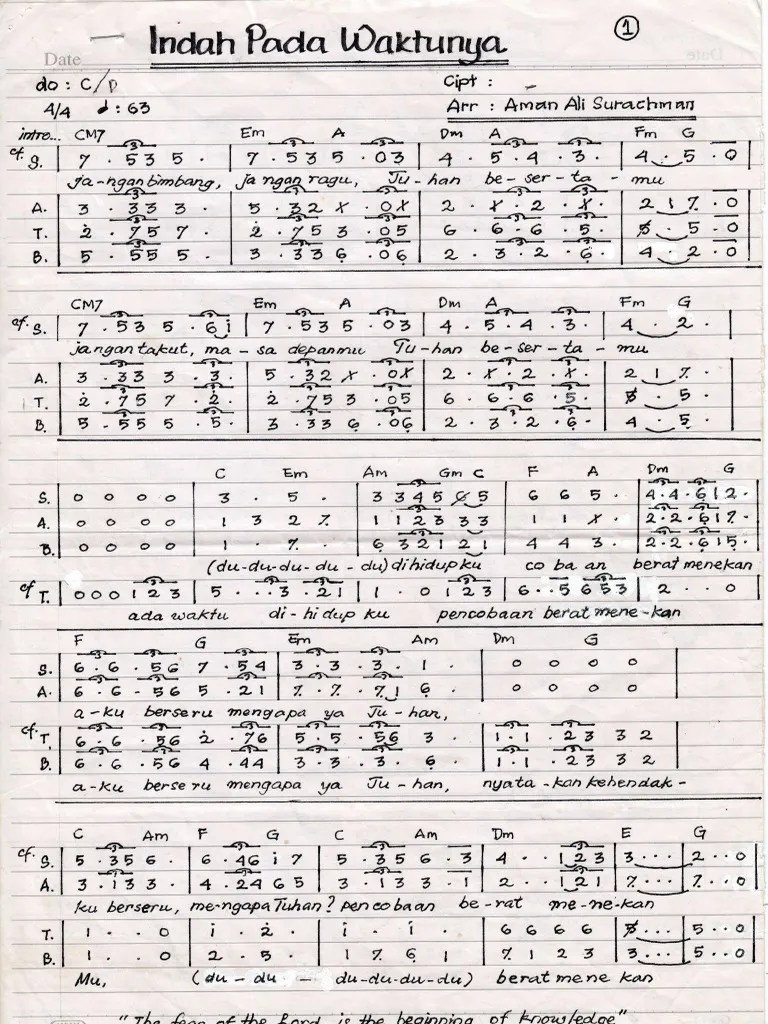 Indah Pada Waktunya
1
Date
do : C/D
Cipt : -
4/4 ♩ : 63
Arr : Aman Ali Surachman
intro... CM7 Em A Dm A Fm G
cf. S. 7 . 535 . | 7 . 535 . 03 | 4 . 5 . 4 . 3 . | 4 . 5 . 0
ja-ngan bimbang, ja ngan ragu, Tu-han be-ser-ta - mu
A. 3 . 333 . | 5 . 32 x . 0x | 2 . x . 2 . x . | 2 1 7 . 0
T. 2 . 757 . | 2 . 753 . 05 | 6 . 6 . 6 . 5 . | 5 . 5 . 0
B. 5 . 555 . | 3 . 336 . 06 | 2 . 3 . 2 . 6 . | 4 . 2 . 0
CM7 Em A Dm A Fm G
cf. S. 7 . 535 . 6i | 7 . 535 . 03 | 4 . 5 . 4 . 3 . | 4 . 2 .
jangan takut, ma - sa depanmu Tu-han be-ser-ta - mu
A. 3 . 333 . 3 . | 5 . 32 x . 0x | 2 . x . 2 . x . | 2 1 7 .
T. 2 . 757 . 2 . | 2 . 753 . 05 | 6 . 6 . 6 . 5 . | 5 . 5 .
B. 5 . 555 . 5 . | 3 . 336 . 06 | 2 . 3 . 2 . 6 . | 4 . 5 .
C Em Am Gm C F A Dm G
S. 0 0 0 0 | 3 . 5 . | 3 3 4 5 6 5 | 6 6 5 . | 4 . 4 . 6 1 2 .
A. 0 0 0 0 | 1 3 2 7 | 1 1 2 3 3 3 | 1 1 x . | 2 . 2 . 6 1 7 .
B. 0 0 0 0 | 1 . 7 . | 6 3 2 1 2 1 | 4 4 3 . | 2 . 2 . 6 1 5 .
(du-du-du-du-du) dihidupku co ba an berat menekan
cf T. 0 0 0 1 2 3 | 5 . . . 3 . 2 1 | 1 . 0 1 2 3 | 6 . . 5 6 5 3 | 2 . . 0
ada waktu di-hi dup ku pencobaan berat mene-kan
F G Em Am Dm G
S. 6 . 6 . 56 7 . 54 | 3 . 3 . 3 . 1 . | 0 0 0 0
A. 6 . 6 - 56 5 . 21 | 7 . 7 . 71 6 . | 0 0 0 0
a-ku berseru mengapa ya Tu-han,
cf. T. 6 . 6 . 56 2 . 76 | 5 . 5 . 56 3 . | 1 . 1 . 23 3 2
B. 6 . 6 . 56 4 . 44 | 3 . 3 . 3 . 6 . | 1 . 1 . 23 3 2
a-ku berse ru mengapa ya Tu-han, nyata-kan kehendak-
C Am F G C Am Dm E G
cf. S. 5 . 356 . | 6 . 46 i 7 | 5 . 356 . 3 | 4 . . 1 2 3 | 3 . . . | 2 . . 0
A. 3 . 133 . | 4 . 24 6 5 | 3 . 133 . 1 | 2 . . 1 2 1 | 7 . . . | 7 . . 0
ku berseru, me-ngapa Tuhan? pen coba an be-rat me-ne-kan
T. 1 . . 0 | i . 2 . | i . i . | 6 6 6 6 | 3 . . . | 5 . . 0
B. 1 . . 0 | 2 . 5 . | 1 7 6 1 | 7 1 2 3 | 3 . . . | 5 . . 0
Mu, (du - du - du-du-du-du) berat mene kan
"The fear of the Lord is the beginning of knowledge"